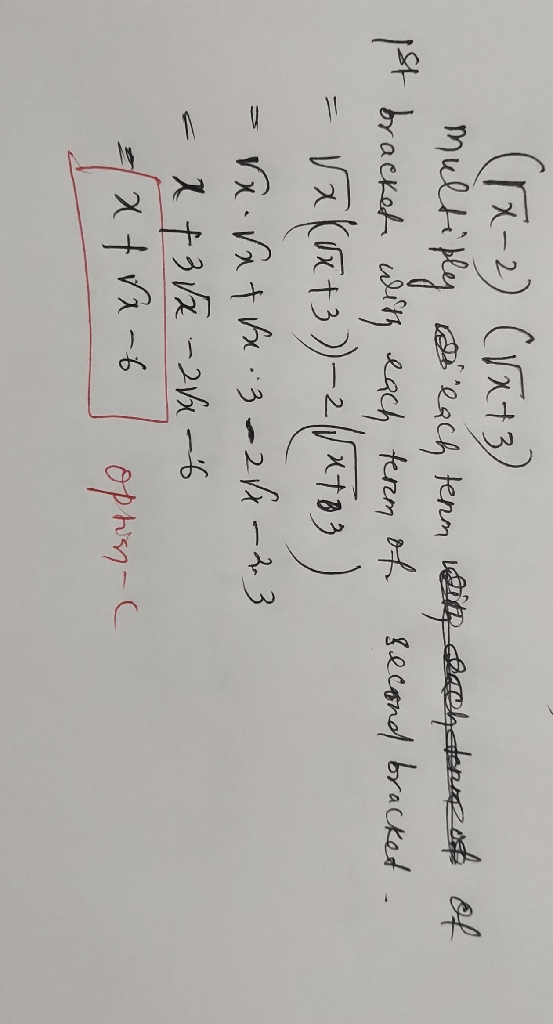 (√x-2) (√x+3)
Multiply each term of
1st bracket with each term of second bracket.
= √x(√x+3))-2(√x+3)
= √x.√x+√x.3-2√x-2.3
= x+3√x-2√x-6
= x+√x-6
option-C